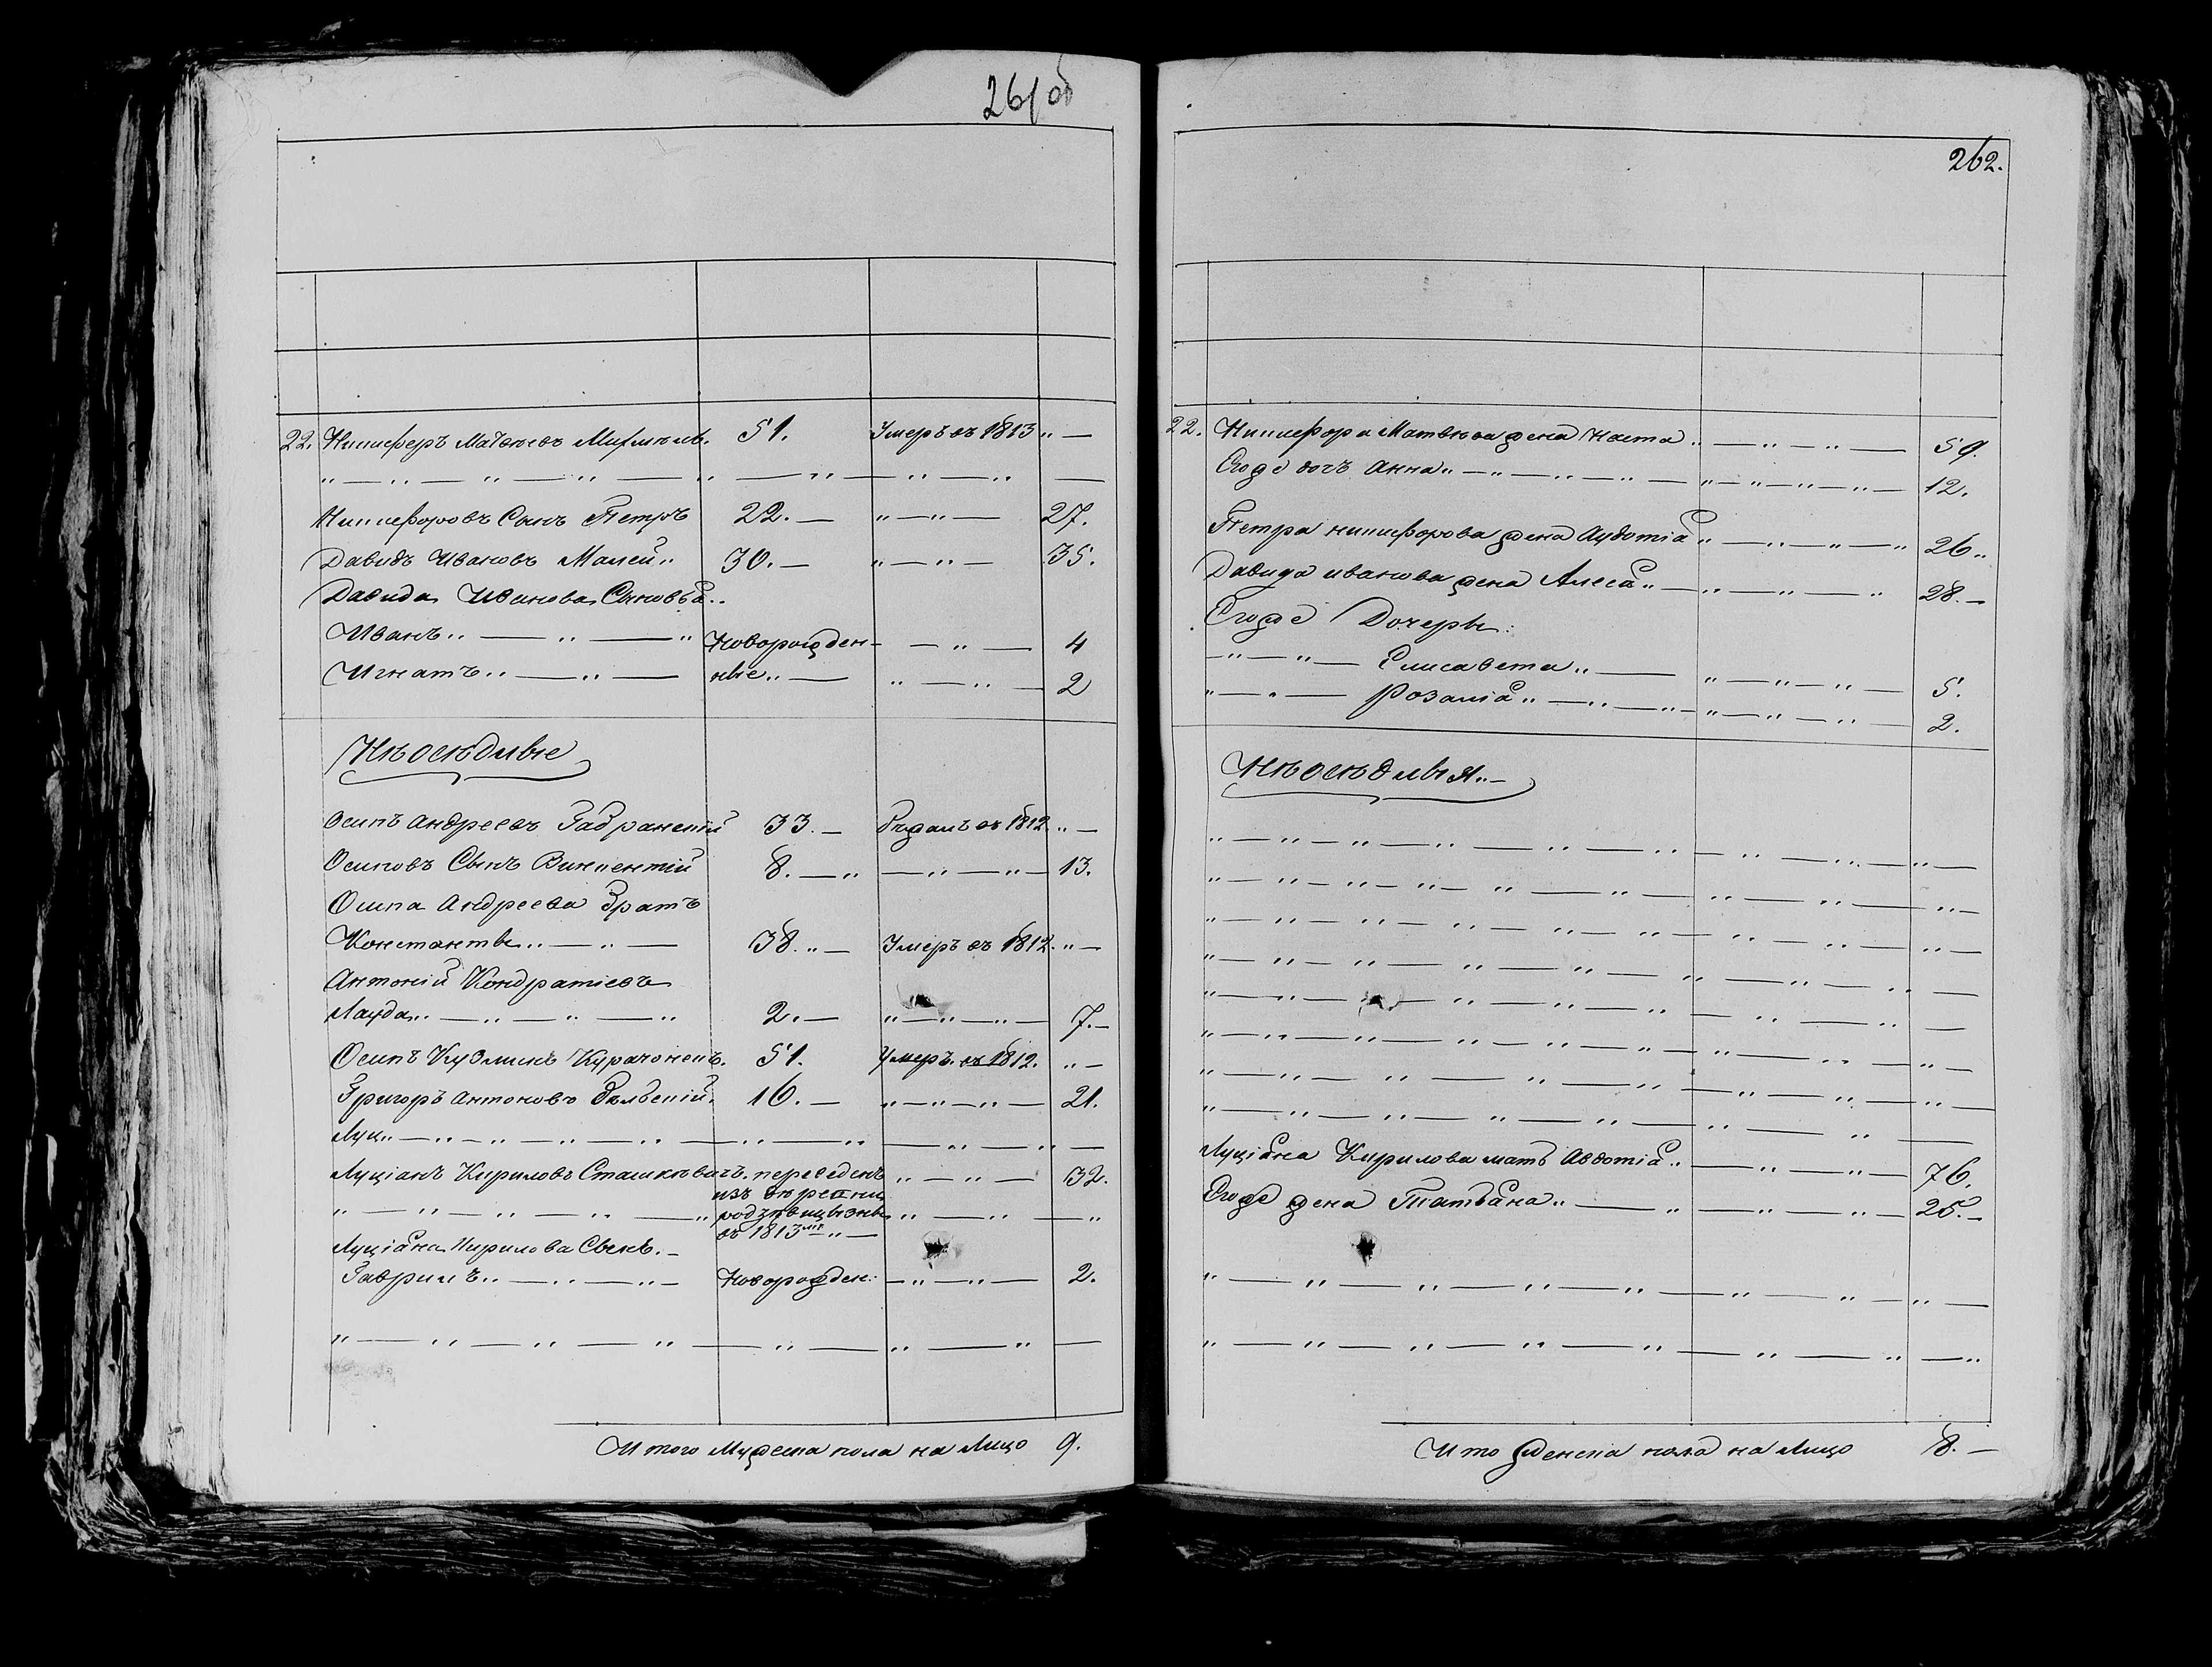 261 об
22. Ничиперъ Матвѣевъ 51. Умеръ въ 1813 „ —
Ничиперовъ Сынъ Петръ 22. — 27.
Давидъ Ивановъ Малей „ 30. — 35.
Давида Иванова Сыновья „
Иванъ „ Новорожден- 4
Игнатъ „ ные „ — 2
Неосѣдлые
Осипъ Андреевъ 33. — бѣжалъ въ 1812 „ —
Осиповъ Сынъ Винцентій 8. — 13.
Осипа Андреева Братъ
Константы „ 38. „ — Умеръ въ 1812. „ —
Антоній Кондратіевъ
Лауда „ 2. — 7. —
Осипъ Кузминъ 51. Умеръ въ 1812. „ —
Григоръ Антоновъ 16. — 21.
Луціанъ Кириловъ переведенъ 32.
изъ деревни
въ 1813 „ —
Луціана Кирилова Сынъ. —
Гаврилъ „ Новорожден: 2.
Итого Мужеска пола на Лицо 9.
262.
22. Ничипора Матвѣева жена Наста „ 59.
Егоже дочь Анна „ 12.
Петра ничипорова жена Аудотіа „ 26 „
Давида иванова жена Алеса „ 28. —
Егоже Дочеры:
Елисавета „ 5.
Розаліа „ 2.
Неосѣдлыя „ —
Луціана Кирилова мать Авдотіа „ 76.
Егожъ жена Татьана „ 25. —
Ито женска пола на Лицо 8. —